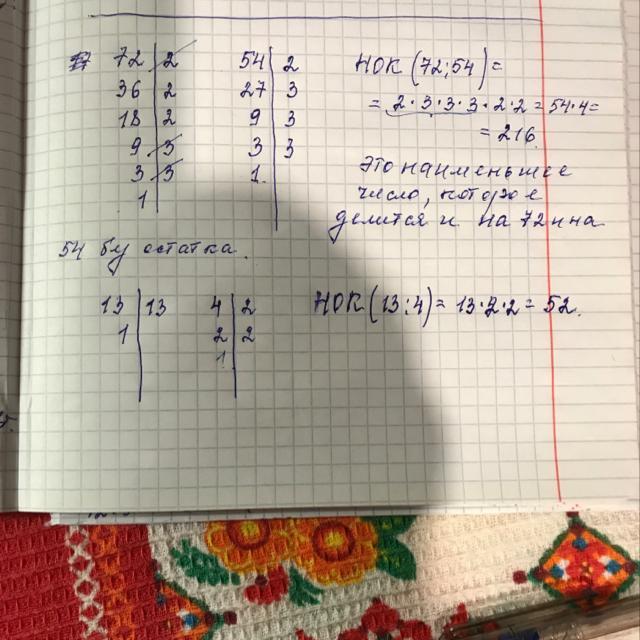 72 | 2 54 | 2 НОК (72; 54) =
36 | 2 27 | 3 = 2·3·3·3·2·2 = 54·4 =
18 | 2 9 | 3 = 216
9 | 3 3 | 3
3 | 3 1 это наименьшее
1 число, которое
делится и на 72 и на
54 без остатка.
13 | 13 4 | 2 НОК (13; 4) = 13·2·2 = 52.
1 2 | 2
1